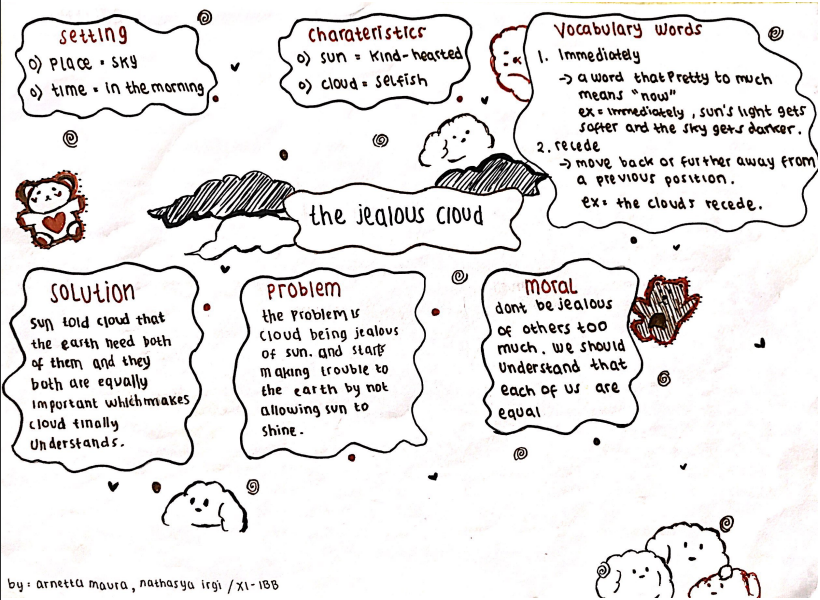 setting
o) place = sky
o) time = in the morning
charateristics
o) sun = kind-hearted
o) cloud = selfish
Vocabulary words
1. Immediately
-> a word that pretty to much
means "now"
ex = immediately, sun's light gets
softer and the sky gets darker.
2. recede
-> move back or further away from
a previous position.
ex = the clouds recede.
the jealous cloud
solution
sun told cloud that
the earth need both
of them and they
both are equally
important which makes
cloud finally
understands.
Problem
the problem is
cloud being jealous
of sun. and starts
making trouble to
the earth by not
allowing sun to
shine.
moral
dont be jealous
of others too
much. we should
understand that
each of us are
equal
by: arnetta maura, nathasya irgi / XI-IBB